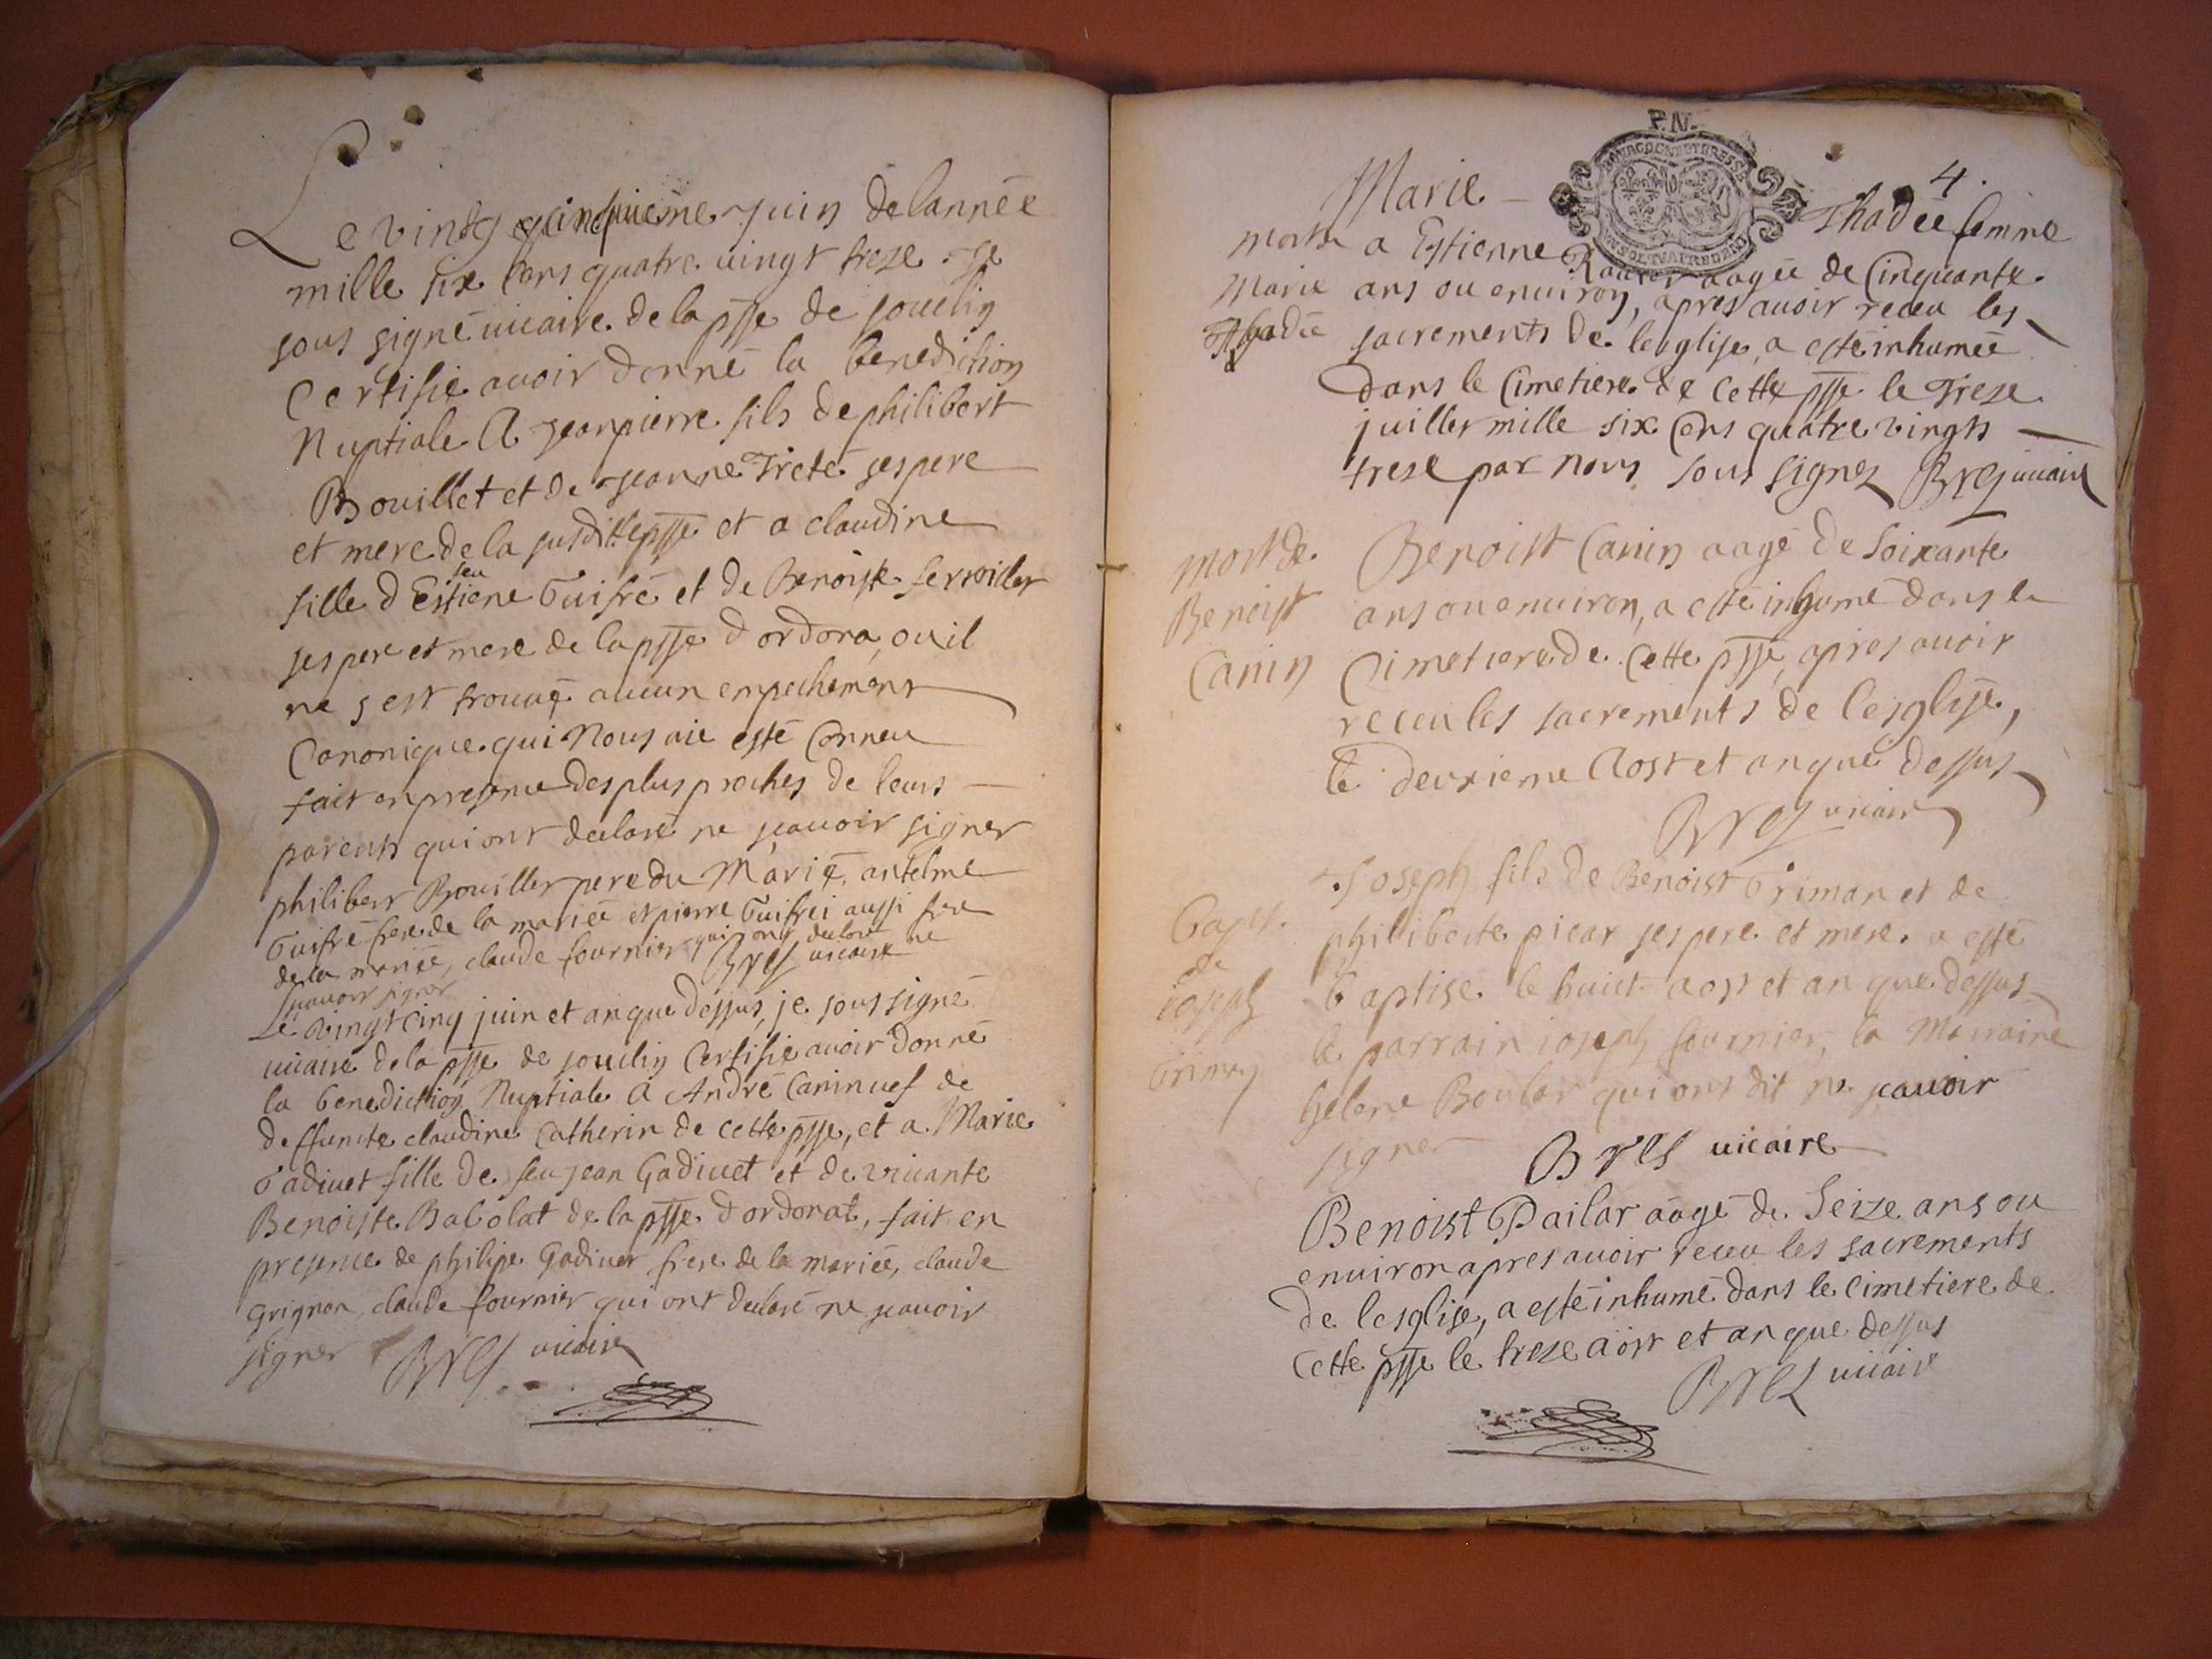 Le vintg cinquieme juin de lannée
mille six cens quatre vingt treze Je
sous signé vicaire de la psse de jouclin
Certifie avoir donné la benediction
Nuptiale A Jeanpierre fils de philibert
Brouillet et de Jeanne Treté ses pere
et mere de la susditte psse et a claudine
feu
fille d'Estiene Guifré et de Benoiste
ses pere et mere de la psse d'ordona, ou il
ne s'est trouvé aucun empechement
Canonique qui Nous aie esté Conneu
fait en presence des plus proches de leurs
parents qui ont declaré ne scavoir signer
philibert Brouillet pere du Marié, antelme
Guifré frere de la mariée et pierre Guifrei aussi frere
de la mariée, claude fournier qui ont declaré ne
scavoir signer Bres vicaire
Le vingt cinq juin et an que dessus, je sous signé
vicaire de la psse de jouclin Certifie avoir donné
la benediction Nuptiale A André Canin vef de
deffuncte claudine Catherin de cette psse, et a Marie
Gadivet fille de feu jean Gadivet et de vivante
Benoiste Babolat de la psse d'ordonat, fait en
presence de philipe Gadivet frere de la mariée, claude
Grignon, claude fournier qui ont declaré ne scavoir
signer Bres vicaire
P.N.
BOURGOGNE ET BRESSE
4.
Marie Thadée femme
a Estienne Ravet aagée de Cinquante
ans ou environ, apres avoir receu les
sacrements de leglise, a esté inhumée
dans le Cimetiere de cette psse le Treze
juillet mille six Cens quatre vingts
treze par nous sous signez Bres vicaire
morte
Marie
Thadée
Benoist Canin aagé de Soixante
ans ou environ, a esté inhumé dans le
Cimetiere de Cette psse, apres avoir
receu les sacrements de l'esglise,
le deuxieme Aost et an que dessus
Bres vicaire
mort de
Benoist
Canin
Joseph fils de Benoist Griman et de
philiberte picar ses pere et mere a esté
baptisé le huict aost et an que dessus
le parrain joseph fournier, la Marraine
helene Boular qui ont dit ne scavoir
signer Bres vicaire
Bapt.
de
joseph
Griman
Benoist Pailar aagé de Seize ans ou
environ apres avoir receu les sacrements
de l'esglise, a esté inhumé dans le cimetiere de
cette psse le treze aost et an que dessus
Bres vicaire